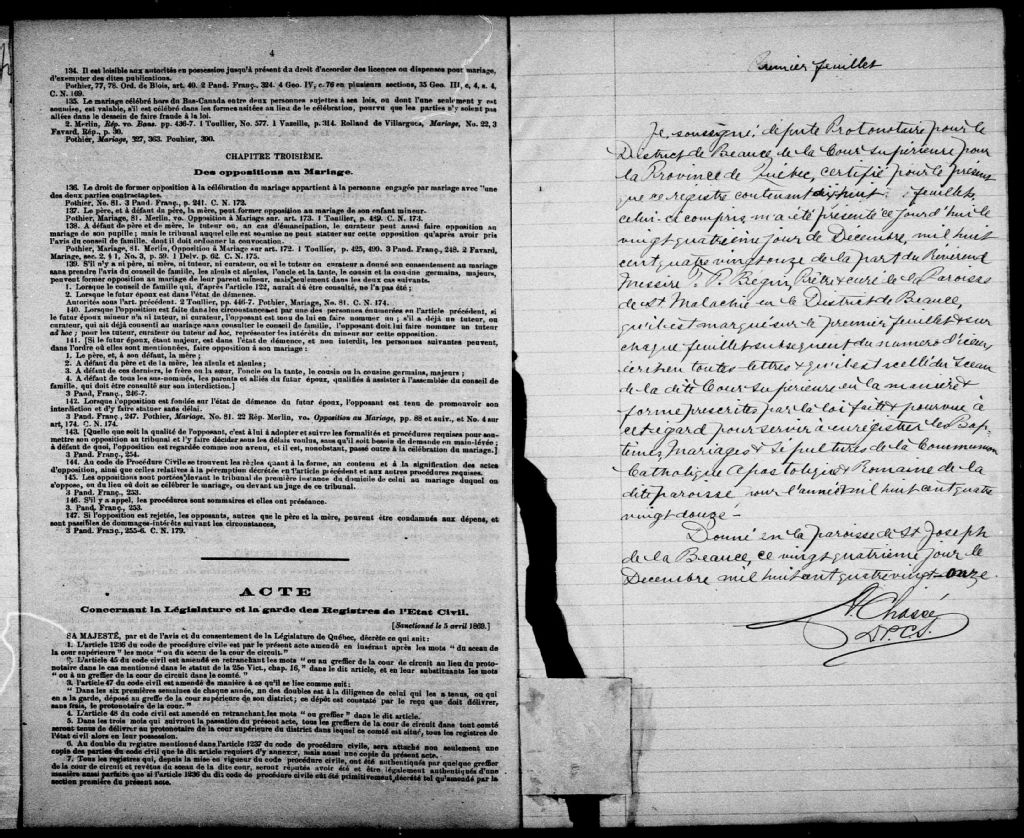 4
134. Il est loisible aux autorités en possession jusqu'à présent du droit d'accorder des licences ou dispenses pour mariage,
d'exempter des dites publications.
Pothier, 77, 78. Ord. de Blois, art. 40. 2 Pand. Franç., 324. 4 Geo. IV, c. 76 en plusieurs sections, 35 Geo. III, c, 4, s. 4,
C. N. 169.
135. Le mariage célébré hors du Bas-Canada entre deux personnes sujettes à ses lois, ou dont l'une seulement y est
soumise, est valable, s'il est célébré dans les formes usitées au lieu de la célébration, pourvu que les parties n'y soient pas
allées dans le dessein de faire fraude à la loi.
2. Merlin, Rép. vo. Bans. pp. 436-7. 1 Toullier, No. 577. 1 Vazeille, p. 314. Rolland de Villargues, Mariage, No. 22, 3
Favard, Rép., p. 30.
Pothier, Mariage, 327, 363. Pouhier, 390.
CHAPITRE TROISIÈME.
Des oppositions au Mariage.
136. Le droit de former opposition à la célébration du mariage appartient à la personne engagée par mariage avec "une
des deux parties contractantes.
Pothier, No. 81. 3 Pand. Franç., p. 241. C. N. 172.
137. Le père, et à défaut du père, la mère, peut former opposition au mariage de son enfant mineur.
Pothier, Mariage, 81. Merlin, vo. Opposition à Mariage sur art. 173. 1 Toullier, p. 489. C. N. 173.
138. A défaut de père et de mère, le tuteur ou, an cas d'émancipation, le curateur peut aussi faire opposition au
mariage de son pupille; mais le tribunal auquel elle est soumise ne peut statuer sur cette opposition qu'après avoir pris
l'avis du conseil de famille. dont il doit ordonner la convocation.
Pothier, Mariage, 81. Merlin, Opposition à Mariage sur art. 172. 1 Toullier, p. 425, 490. 3 Pand. Franç., 248. 2 Favard,
Mariage, sec. 2. § 1, No. 3, p. 59. 1 Delv. p. 62. C. N. 175.
139. S'il n'y a ni père, ni mère, ni tuteur, ni curateur, ou si le tuteur ou curateur a donné son consentement au mariage
sans prendre l'avis du conseil de famille, les aïeuls et aïeules, l'oncle et la tante, le cousin et la cousine germains, majeurs,
peuvent former opposition au mariage de leur parent mineur, mais seulement dans les deux cas suivants:
1. Lorsque le conseil de famille qui, d'après l'article 122, aurait du être consulté, ne l'a pas été;
2. Lorsque le futur époux est dans l'état de démence.
Autorités sous l'art. précédent. 2 Toullier, pp. 446-7. Pothier, Mariage, No. 81. C. N. 174.
140. Lorsque l'opposition est faite dans les circonstances et par une des personnes énumérées en l'article précédent, si
le futur époux mineur n'a ni tuteur, ni curateur, l'opposant est tenu de lui en faire nommer un; s'il a déjà un tuteur, ou
curateur, qui ait déjà consenti au mariage sans consulter le conseil de famille, l'opposant doit lui faire nommer un tuteur
ad hoc; pour les tuteur, curateur ou tuteur ad hoc, représenter les intérêts du mineur sur cette opposition.
141. [Si le futur époux, étant majeur, est dans l'état de démence, et non interdit, les personnes suivantes peuvent,
dans l'ordre où elles sont mentionnées, faire opposition à son mariage:
1. Le père, et, à son défaut, la mère;
2. A défaut du père et de la mère, les aïeuls et aïeules;
3. A défaut de ces derniers, le frère ou la sœur, l'oncle ou la tante, le cousin ou la cousine germains, majeurs;
4. A défaut de tous les sus-nommés, les parents et alliés du futur époux, qualifiés à assister à l'assemblée du conseil de
famille, qui doit être consulté sur son interdiction.]
3 Pand. Franç., 246-7.
142. Lorsque l'opposition est fondée sur l'état de démence du futur époux, l'opposant est tenu de promouvoir son
interdiction et d'y faire statuer sans délai.
3 Pand. Franç., 247. Pothier, Mariage, No. 81. 22 Rép. Merlin, vo. Opposition au Mariage, pp. 88 et suiv., et No. 4 sur
art, 174. C. N. 174.
143. [Quelle que soit la qualité de l'opposant, c'est à lui à adopter et suivre les formalités et procédures requises pour sou-
mettre son opposition au tribunal et l'y faire décider sous les délais voulus, sans qu'il soit besoin de demande en main-levée;
à défaut de quoi, l'opposition est regardée comme non avenue, et il est, nonobstant, passé outre à la célébration du mariage.]
3 Pand. Franç., 254.
144. Au code de Procédure Civile se trouvent les règles quant à la forme, au contenu et à la signification des actes
d'opposition, ainsi que celles relatives à la péremption décrétée en l'article précédent et aux autres procédures requises.
145. Les oppositions sont portées devant le tribunal de première instance du domicile de celui au mariage duquel on
s'oppose, ou du lieu où doit se célébrer le mariage, ou devant un juge de ce tribunal.
3 Pand. Franç., 253.
146. S'il y a appel, les procédures sont sommaires et elles ont préséance.
3. Pand. Franç., 253.
147. Si l'opposition est rejetée, les opposants, autres que le père et la mère, peuvent être condamnés aux dépens, et
sont passibles de dommages-intérêts suivant les circonstances,
3 Pand. Franç., 255-6. C. N. 179.
ACTE
Concernant la Législature et la garde des Registres de l'Etat Civil.
[Sanctionné le 5 avril 1869.]
SA MAJESTÉ, par et de l'avis et du consentement de la Législature de Québec, décrète ce qui suit:
1. L'article 1236 du code de procédure civile est par le présent acte amendé en insérant après les mots "du sceau de
la cour supérieure" les mots "ou du sceau de la cour de circuit."
2. L'article 45 du code civil est amendé en retranchant les mots "ou au greffier de la cour de circuit au lieu du proto-
notaire dans le cas mentionné dans le statut de la 25e Vict., chap. 16," dans le dit article, et en leur substituant les mots
"ou à un greffier de la cour de circuit dans le comté."
3. l'article 47 du code civil est amendé de manière à ce qu'il se lise comme suit:
"Dans les six premières semaines de chaque année, un des doubles est à la diligence de celui qui les a tenus, ou qui
en a la garde, déposé au greffe de la cour supérieure de son district; ce dépôt est constaté par le reçu que doit délivrer,
sans frais, le protonotaire de la cour."
4. L'article 48 du code civil est amendé en retranchant les mots "ou greffier" dans le dit article.
5. Dans les trois mois qui suivront la passation du présent acte, tous les greffiers de la cour de circuit dans tout comté
seront tenus de délivrer au protonotaire de la cour supérieure du district dans lequel ce comté est situé, tous les registres de
l'état civil alors en leur possession.
6. Au double du registre mentionné dans l'article 1237 du code de procédure civile, sera attaché non seulement une
copie des parties du code civil que le dit article requiert d'y annexer, mais aussi une copie du présent acte.
7. Tous les registres qui, depuis la mise en vigueur du code procédure civile, ont été authentiqués par quelque greffier
de la cour de circuit et revêtus du sceau de la dite cour, seront réputés avoir été et être légalement authentiqués d'une
manière aussi parfaite que si l'article 1236 du dit code de procédure civile eût été primitivement décrété tel qu'amendé par la
section première du présent acte.
Premier feuillet
Je soussigné, deputé Protonotaire pour le
District de Beauce, de la Cour Supérieure pour
la Province de Québec, certifie pour le présent
que ce registre contenant dixhuit feuillets
celui-ci compris, m'a été présenté ce jour d'hui le
vingt quatrième jour de Décembre, mil huit
cent quatre vingt onze de la part du Révérend
Messire J. P. Begin Prêtre & curé de la Paroisse
de St Malachie en le District de Beauce,
qu'il est marqué sur le premier feuillet & sur
chaque feuillet subsequent du numero d'iceux
écrit en toutes lettres & qu'il est scellé du Sceau
de la dite Cour Supérieure en la manière &
forme prescrites par la loi faite & pourvue à
cet égard pour servir à enregistrer les Bap-
têmes, Mariages & Sépultures de la Communion
Catholique Apostolique & Romaine de la
dite paroisse pour l'année mil huit cent quatre
vingt douze -
Donné en la paroisse de St Joseph
de la Beauce, ce vingt quatrième jour de
Decembre mil huit cent quatre vingt onze.
Chassé
D.P.C.S.